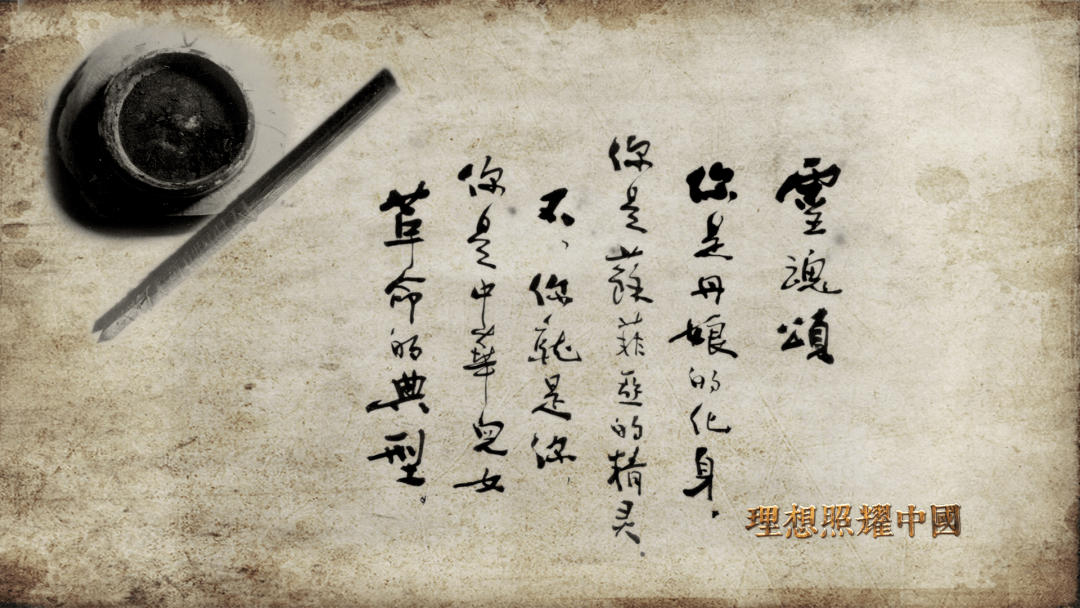 靈魂頌
你是丹娘的化身，
你是蘇菲亞的精灵，
不、你就是你
你是中華兒女
革命的典型。
理想照耀中國